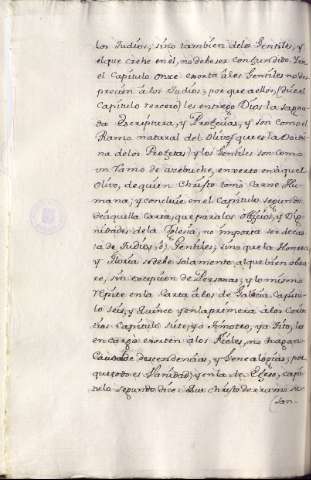 los Judios, sino tambien delos Gentiles, y
el que crehe en el, no debe ser confundido. Yen
el Capitulo Onze exorta àlos Gentiles no des-
precien à los Judios; por que a ellos, (dice el
Capitulo tercero) les entrego Dios la sagra-
da Escriptura, y Profecias, y son como el
Ramo natural del Olivo (que es la Doctri-
na delos Profetas) y los Gentiles son como
un Ramo de azebuche, en aquel
Olivo, de quien Christo tomò Carne Hu-
mana; y concluie en el Capitulo segundo
de aquella Carta, que para los Officios, y Dig-
nidades de la Iglesia, no importa ser de cas-
ta de Judios, ò, Gentiles, sino que la Honrra,
y Gloria se debe solamente al que bien obra-
re, sin excepcion de Personas; y lo mismo
repite en la Carta à los de Galacia Capitu-
lo seis, y Quinze y en la primera à los Corin-
tios Capitulo siete; y à Timoteo, y à Tito, les
encarga exorten à los Fieles, no hagan
Caudal de descendencias, y Genealogias; por
que todo es Vanidad; y en la de Efeso, capi-
tulo segundo dice: Que Christo